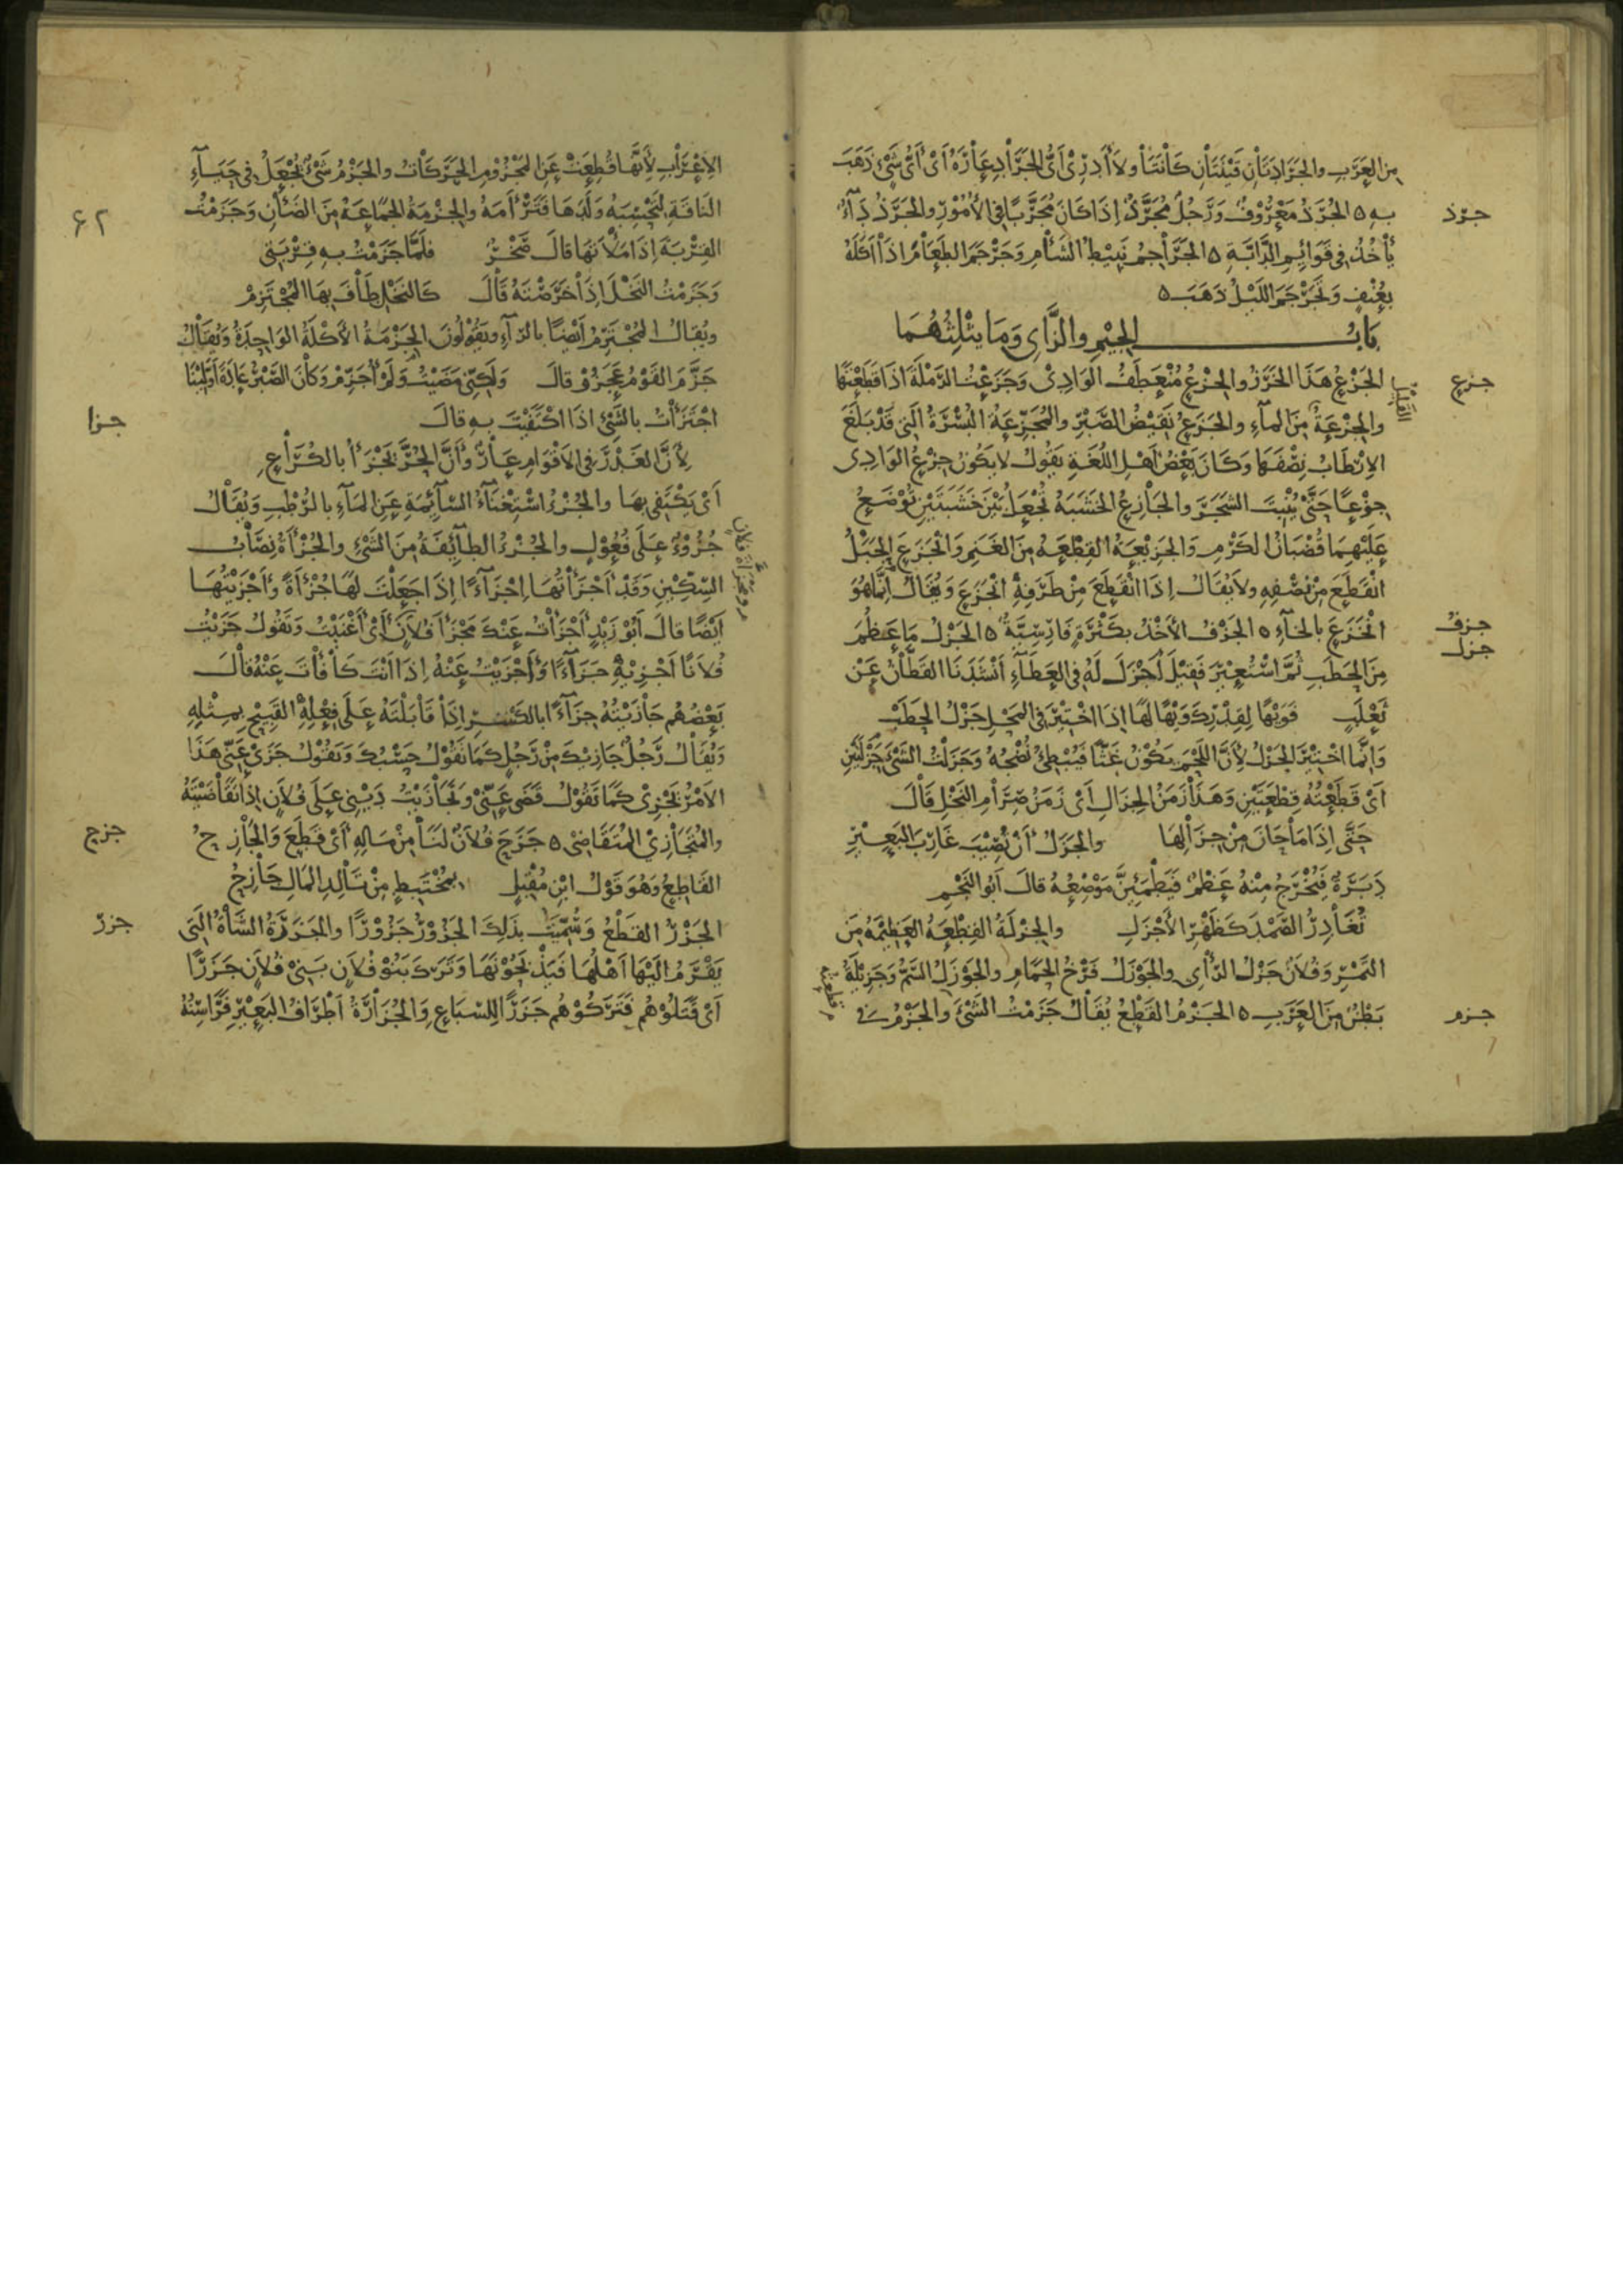 من العرب والجرادتان قينتان كانتا ولا أدري أي الجراد عاره أي أي شيء ذهب
جرذ
به ه الجرذ معروف ورجل مجرذ إذا كان مجربا في الأمور والجرذ داء
يأخذ في قوائم الدابة ه الجراجم نبيط الشام وجرجم الطعام إذا أكله
بعنف وتجرجم الليل ذهب ه
باب الجيم والزاي وما يثلثهما
جزع
الجزع هذا الخرز والجزع منعطف الوادي وجزعت الرملة إذا قطعتها
والجزعة من الماء والجزع نقيض الصبر والمجزعة البسرة التي قد بلغ
الإرطاب نصفها وكان بعض أهل اللغة يقول لا يكون جزع الوادي
جزعا حتى ينبت الشجر والجازع الخشبة تجعل بين خشبتين توضع
عليهما قضبان الكرم والجزيعة القطعة من الغنم وانجزع الحبل
انقطع من نصفه ولا يقال إذا انقطع من طرفه انجزع ويقال إنما هو
جزف
انخزع بالخاء ه الجزف الأخذ بكثرة فارسية ه الجزل ما عظم
جزل
من الحطب ثم استعير فقيل أجزل له في العطاء أنشدنا القطان عن
ثعلب فويها لقدرك ويها لها إذا اختير في المحل جزل الحطب
وإنما اختير الجزل لأن اللحم يكون غثا فيبطئ نضجه وجزلت الشيء جزلتين
أي قطعته قطعتين وهذا زمن الجزال أي زمن صرام النخل قال
حتى إذا ما حان من جزالها والجزل أن تصيب غارب البعير
دبرة فيخرج منه عظم فيطمئن موضعه قال أبو النجم
تغادر الصمد كظهر الأجزل والجزلة القطعة العظيمة من
التمر وفلان جزل الرأي والجوزل فرخ الحمام والجوزل السم وجزيلة
جزم
بطن من العرب ه الجزم القطع يقال جزمت الشيء والجزم في
٦٢
الإعراب لأنها قطعت عن المجزوم الحركات والجزم شيء يجعل في حياء
الناقة لتحسبه ولدها فترأمه والجزمة الجماعة من الضأن وجزمت
القربة إذا ملأتها قال صخر فلما جزمت به قربتي
وجزمت النخل إذا خرصته قال كالنخل طاف بها المجتزم
ويقال المجترم أيضا بالراء ويقولون الجزمة الأكلة الواحدة ويقال
جزم القوم عجزوا قال ولكني مضيت ولم أجزم وكان الصبر عادة أولينا
جزا
اجتزأت بالشيء إذا اكتفيت به قال
لأن الغدر في الأقوام عار وأن الحر يجزأ بالكراع
أي يكتفي بها والجزء استغناء السائمة عن الماء بالرطب ويقال
جزوء على فعول والجزء الطائفة من الشيء والجزأة نصاب
السكين وقد أجزأتها إجزاء إذا جعلت لها جزأة وأجزيتها
أيضا قال أبو زيد أجزأت عنك مجزأ فلان أي أغنيت وتقول جزيت
فلانا أجزيه جزاء وأجزيت عنه إذا أنت كافأت عنه قال
بعضهم جازيته جزاء بالكسر إذا قابلته على فعله القبيح بمثله
ويقال رجل جازيك من رجل كما تقول حسبك وتقول جزى عني هذا
الأمر يجزي كما تقول قضى عني وتجازيت ديني على فلان إذا تقاضيته
جزح
والمتجازي المتقاضي ه جزح فلان لنا من ماله أي قطع والجازح
القاطع وهو قول ابن مقبل لمختبط من تالد المال جازح
جزر
الجزر القطع وسميت بذلك الجزور جزورا والجزرة الشاة التي
يقرم إليها أهلها فيذبحونها وترك بنو فلان بني فلان جزرا
أي قتلوهم فتركوهم جزرا للسباع والجزارة أطراف البعير فراسنه